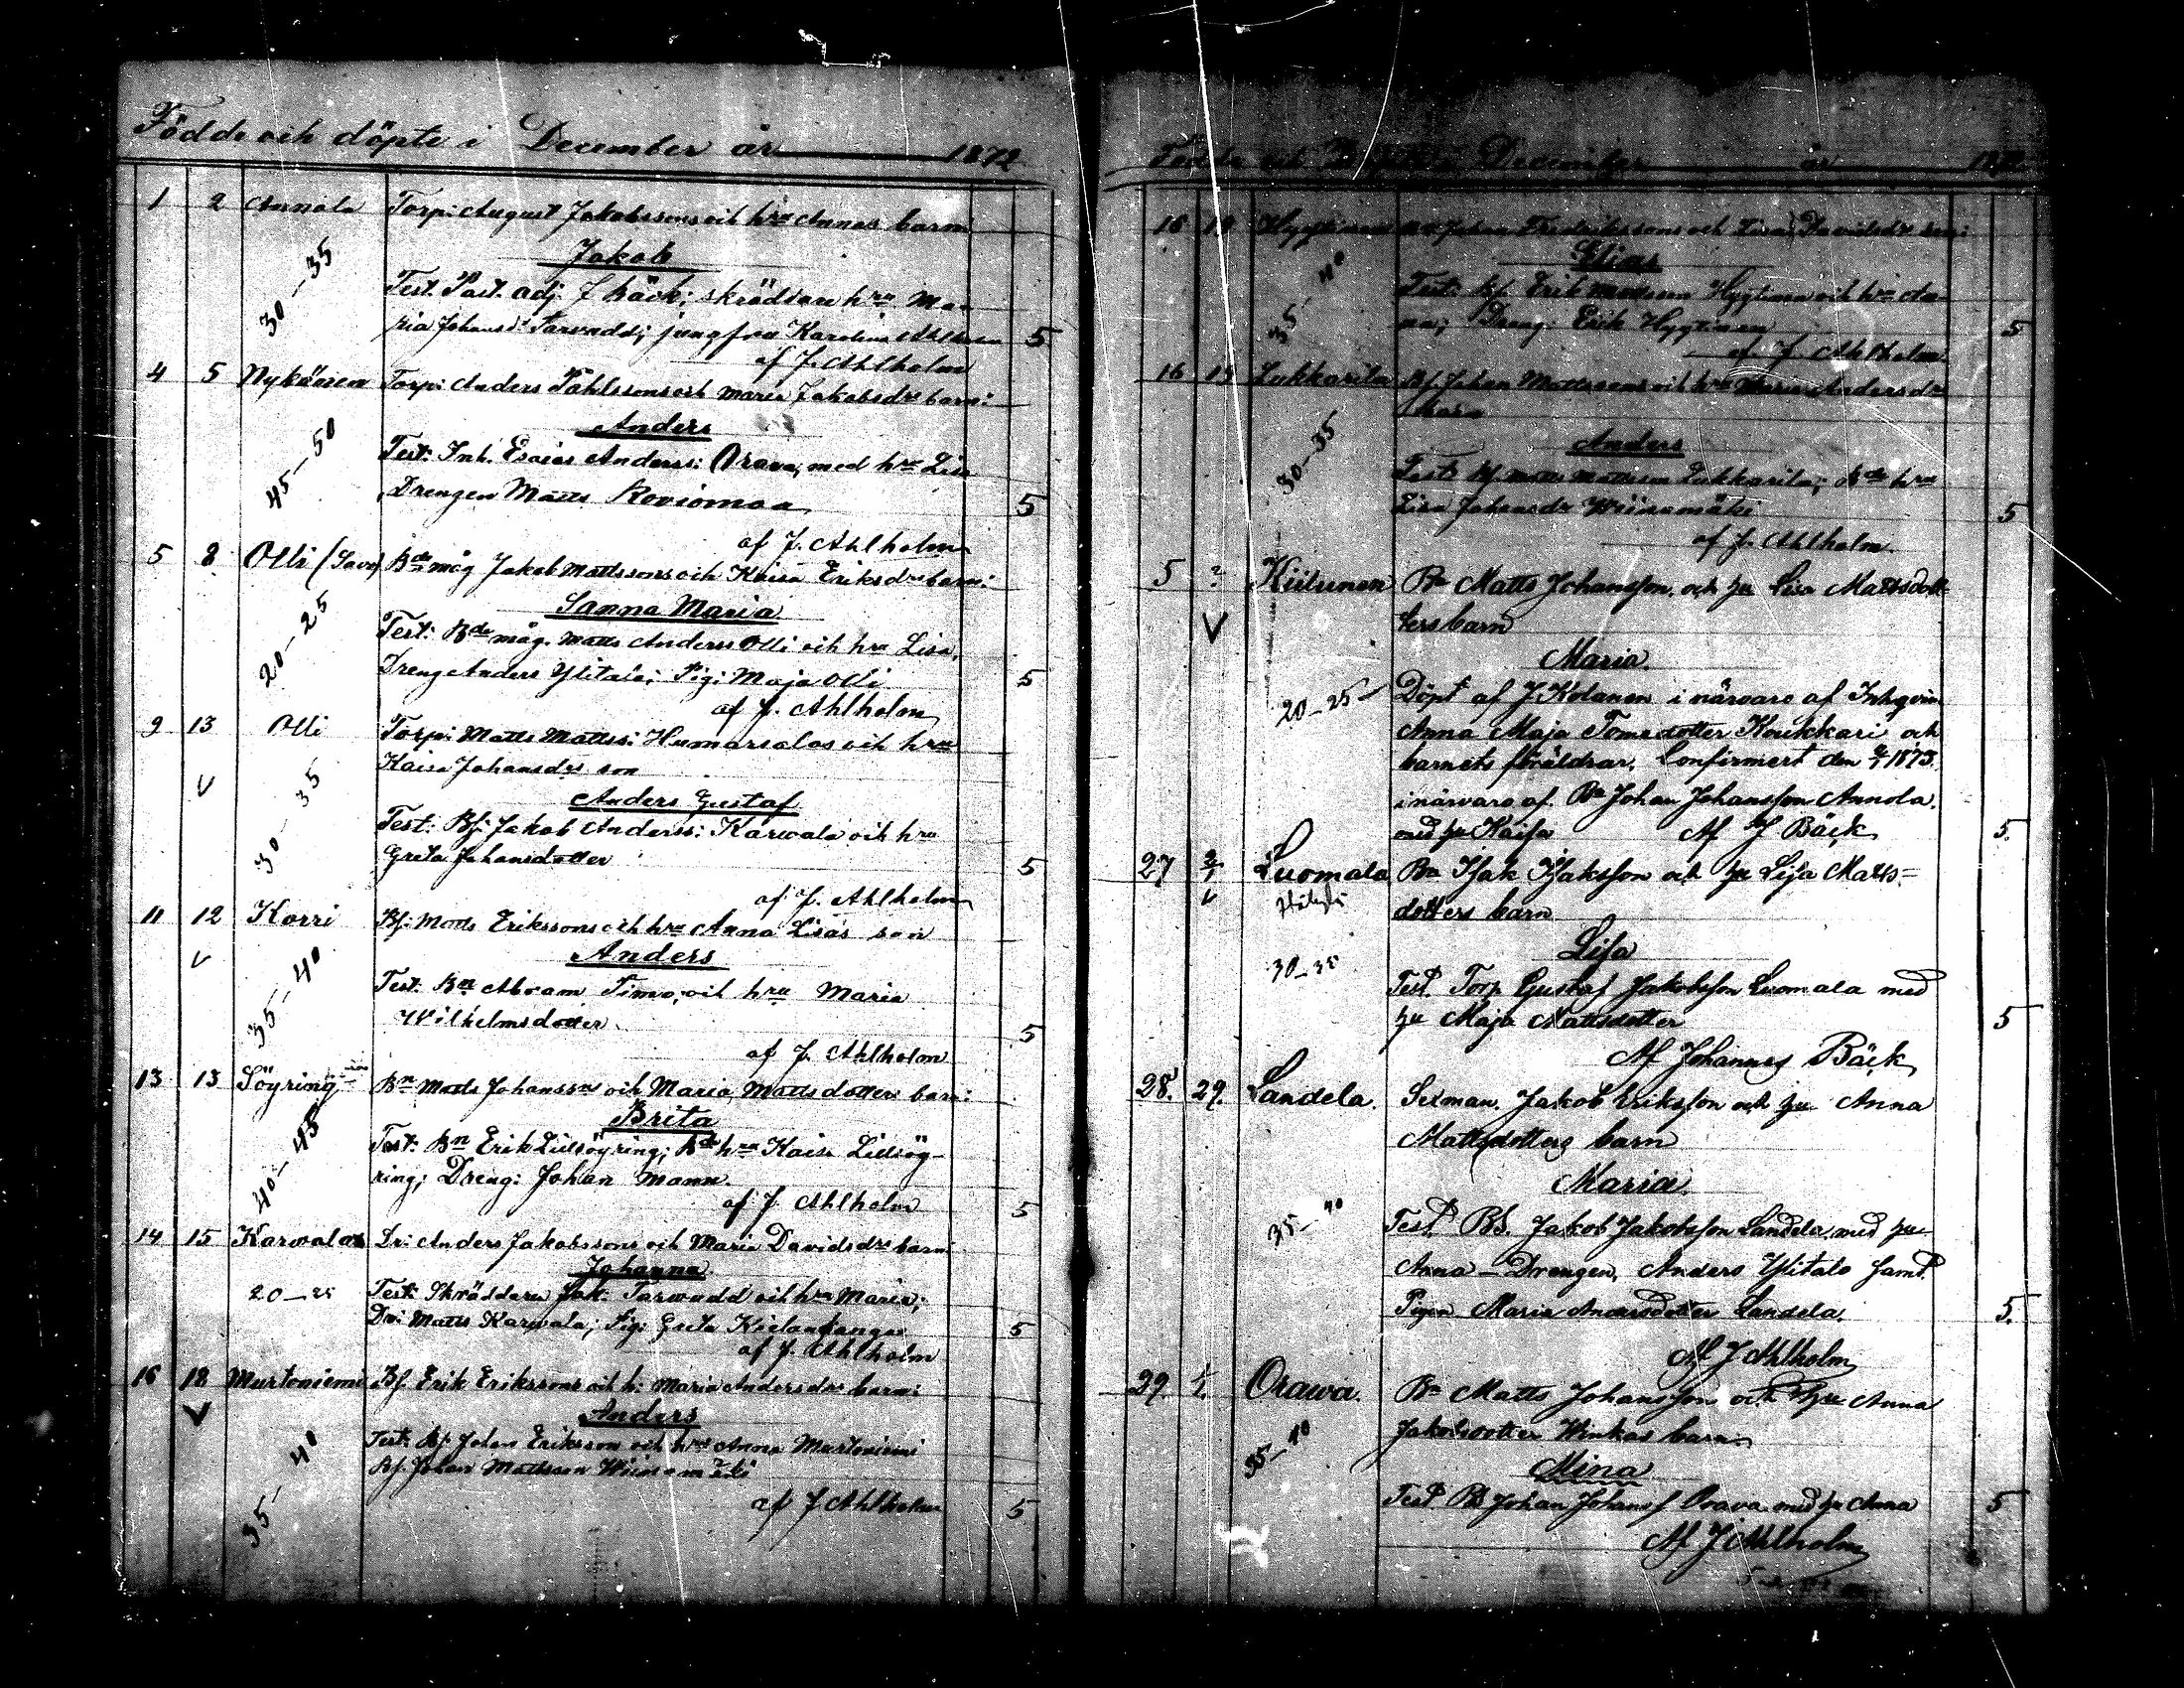 Födde och döpte i December år 1872
1 2 Annala Torp: August Jakobssons och hru Annas barn
Jakob
30-35 Test. Past. adj. J Bäck; skräddare hru Ma-
ria Johansdr Tarvudd; jungfru Karolina Ahlholm 5
af J. Ahlholm
4 5 Nykänen Torp: Anders Påhlssons och Maria Jakobsdrs barn:
Anders
45-50 Test: Inh. Esaias Anderss: Orava, med hru Lisa
Drengen Matts Roviomaa 5
af J. Ahlholm
5 8 Olli (Savo) Bde måg Jakob Mattssons och Kaisa Eriksdrs barn:
Sanna Maria
20-25 Test: Bde måg. Matts Anderss Olli och hru Lisa,
Dreng Anders Ylitalo; Pig: Maja Olli 5
af J. Ahlholm
9 13 Olli Torp: Matts Mattss: Humarsalos och hru
Kaisa Johansdrs son
Anders Gustaf
30-35 Test: Bf: Jakob Anderss: Karwala och hru
Greta Johansdotter 5
af J. Ahlholm
11 12 Korri Bf: Matts Erikssons och hru Anna Lisas son
Anders
35-40 Test. Bn Abram Timo, och hru Maria
Wilhelmsdotter 5
af J. Ahlholm
13 13 Söyring Bn Matts Johanssns och Maria Mattsdotters barn:
Brita
40-45 Test: Bn Erik Lillsöyring; Bde hru Kaisa Lillsöy-
ring; Dreng: Johan Mann.
af J. Ahlholm 5
14 15 Karwala Dr: Anders Jakobssons och Maria Davidsdrs barn
Johanna
20-25 Test: Skräddare Jak: Tarwudd och hru Maria;
Dr: Matts Karwala; Pig: Greta 5
af J. Ahlholm
16 18 Murtoniemi Bf. Erik Erikssons och h: Maria Andersdrs barn:
Anders
35-40 Test: Bf. Johan Eriksson och hru Anna Murtoniemi
Bf. Johan Mattsson Wiinamäki
af J Ahlholm 5
December år
Hyytinen Johan Fredrikssons och Lisa Davidsdrs
Elias
35-40 Test: Bf. Erik Mattsson Hyytinen och hru An-
na; Dreng: Erik Hyytinen 5
af J. Ahlholm
16 Lukkarila Bf. Johan Mattssons och hru Maria Andersdrs
barn
Anders
30-35 Test: Bf. Matts Mattsson Lukkarila; Bde hru
Lisa Johansdr Wiinamäki 5
af J. Ahlholm.
5 Kiilunen Bn Matts Johansson och hu Lisa Mattsdot-
ters barn
Maria
20-25 Döpt af J. Kolanen i närvaro af Inhqvin
Anna Maja Tomasdotter Koukkari och
barnets föräldrar. Confirmert den 2/1 1873.
i närvaro af Bn Johan Johansson Annola.
med hu Kaisa Af J Bäck 5.
27 2/1 Luomala Bn Isak Isaksson och hu Lisa Matts-
dotters barn
Lisa
30-35 Test. Torp Gustaf Jakobsson Luomala med
hu Maja Mattsdotter 5
Af Johannes Bäck
28. 29. Landela. Sexman. Jakob Eriksson och hu Anna
Mattsdotters barn
Maria.
35-40 Test. Bs. Jakob Jakobsson Landela med hu
Anna – Drengen, Anders Ylitalo samt
Pigan Maria Andersdotter Landela. 5.
Af J Ahlholm
29. 1/1. Orawa. Bn Matts Johansson och hu Anna
Jakobsdotter Winkas barn
Mina
35-40 Test Bs Johan Johanss Orava med hu Anna 5
Af J Ahlholm